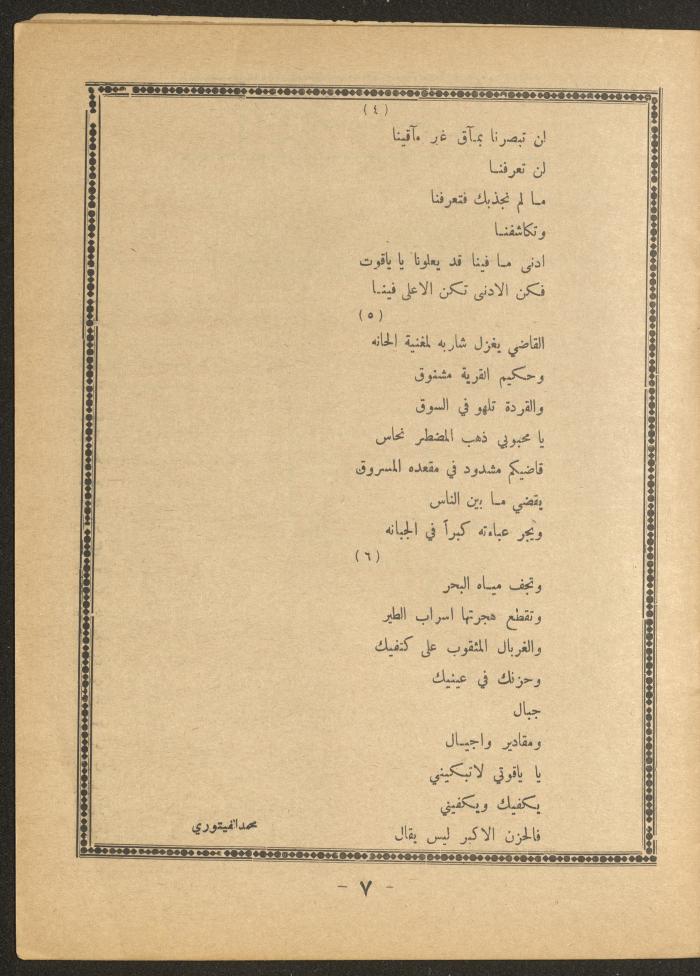 (٤)
لن تبصرنا بمآق غير مآقينا
لن تعرفنا
ما لم نجذبك فتعرفنا
وتكاشفنا
ادنى ما فينا قد يعلونا يا ياقوت
فكن الادنى تكن الاعلى فينا
(٥)
القاضي يغزل شاربه لمغنية الحانه
وحكيم القرية مشنوق
والقردة تلهو في السوق
يا محبوبي ذهب المضطر نحاس
قاضيكم مشدود في مقعده المسروق
يقضي ما بين الناس
ويجر عباءته كبراً في الجبانه
(٦)
وتجف مياه البحر
وتقطع هجرتها اسراب الطير
والغربال المثقوب على كتفيك
وحزنك في عينيك
جبال
ومقادير واجيال
يا ياقوتي لاتبكيني
يكفيك ويكفيني
فالحزن الاكبر ليس يقال
محمد الفيتوري
- ٧ -